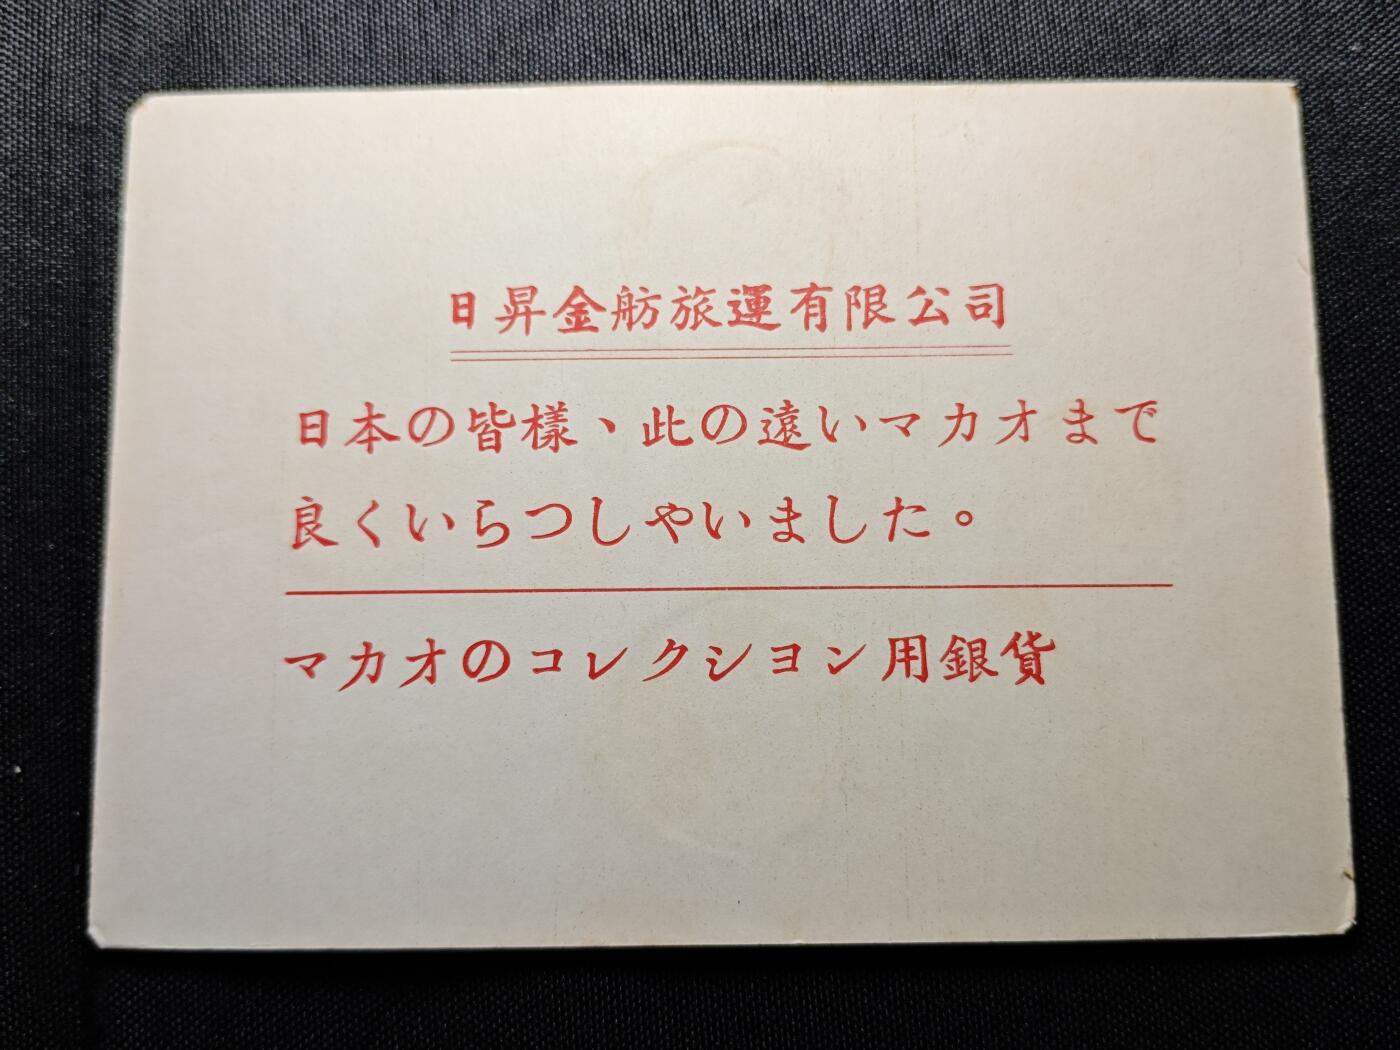 日昇金舫旅運有限公司
日本の皆樣、此の遠いマカオまで
良くいらつしやいました。
マカオのコレクシヨン用銀貨